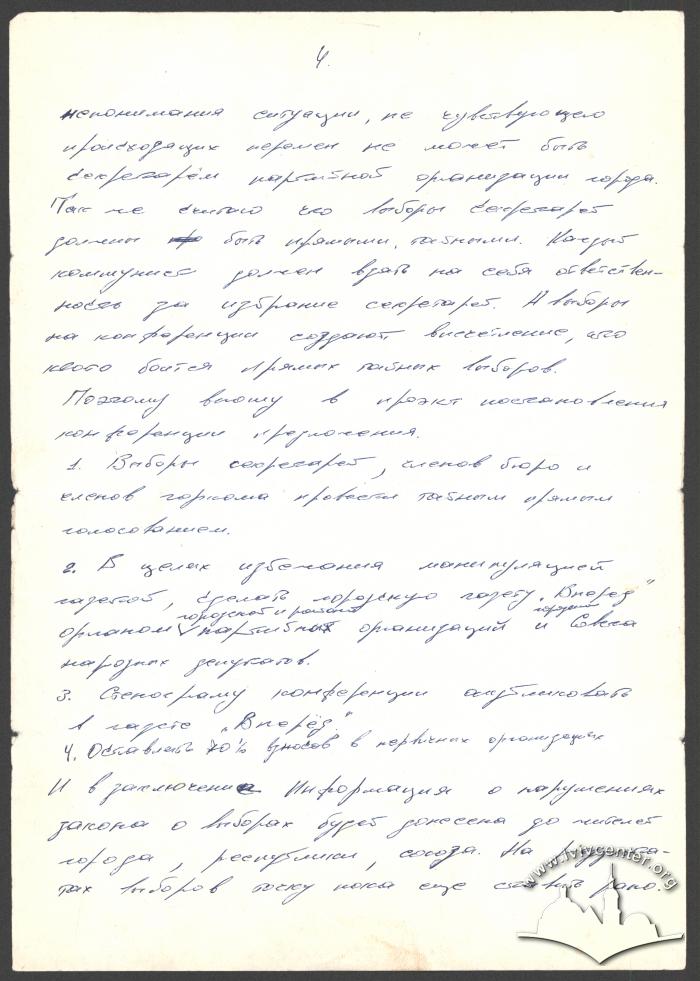 4.
непонимания ситуации, не чувствующего
происходящих перемен не может быть
секретарём партийной организации города.
Так же считаю что выборы секретарей
должны быть прямыми, тайными. Каждый
коммунист должен взять на себя ответствен-
ность за избрание секретарей. А выборы
на конференции создают впечетление, что
кто-то боится прямых тайных выборов.
Поэтому вношу в проэкт постановления
конференции предложения.
1. Выборы секретарей, членов бюро и
членов горкома провести тайным прямым
голосованием.
2. В целях избежания манипуляцией
газетой, сделать городскую газету „Вперед"
городской и районой
органом партийной организаций и Совета
народных депутатов.
3. Стенограму конференции опубликовать
в газете „Вперёд"
4. Оставлять 70% взносов в первичных организациях
И в заключение Информация о нарушениях
закона о выборах будет донесена до жителей
города, республики, союза. На результа-
тах выборов точку пока еще ставить рано.
www.lvivcenter.org